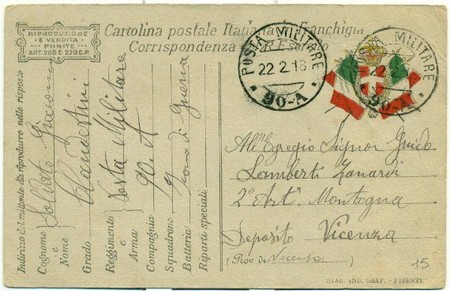 RIPRODUZIONE
E VENDITA
PUNITE
ART. 285 E 270 C.P.
Cartolina postale Italiana in Franchigia
Corrispondenza del R. Esercito
POSTA MILITARE
22.2.18
90-A
POSTA MILITARE
90-A
Indirizzo del mittente da riprodurre nelle risposte
Cognome e Nome
Soldato Giacomo
Grado
Clementini
Reggimento e Arma
Posta Militare
Compagnia
90 A
Squadrone
Batteria
Zona di Guerra
Riparti speciali
All'Egregio Signor Guido
Lamberti Zanardi
2° Art. Montagna
Deposito Vicenza
(Prov. di Vicenza)
15
STAB. IND. GRAF. - FIRENZE